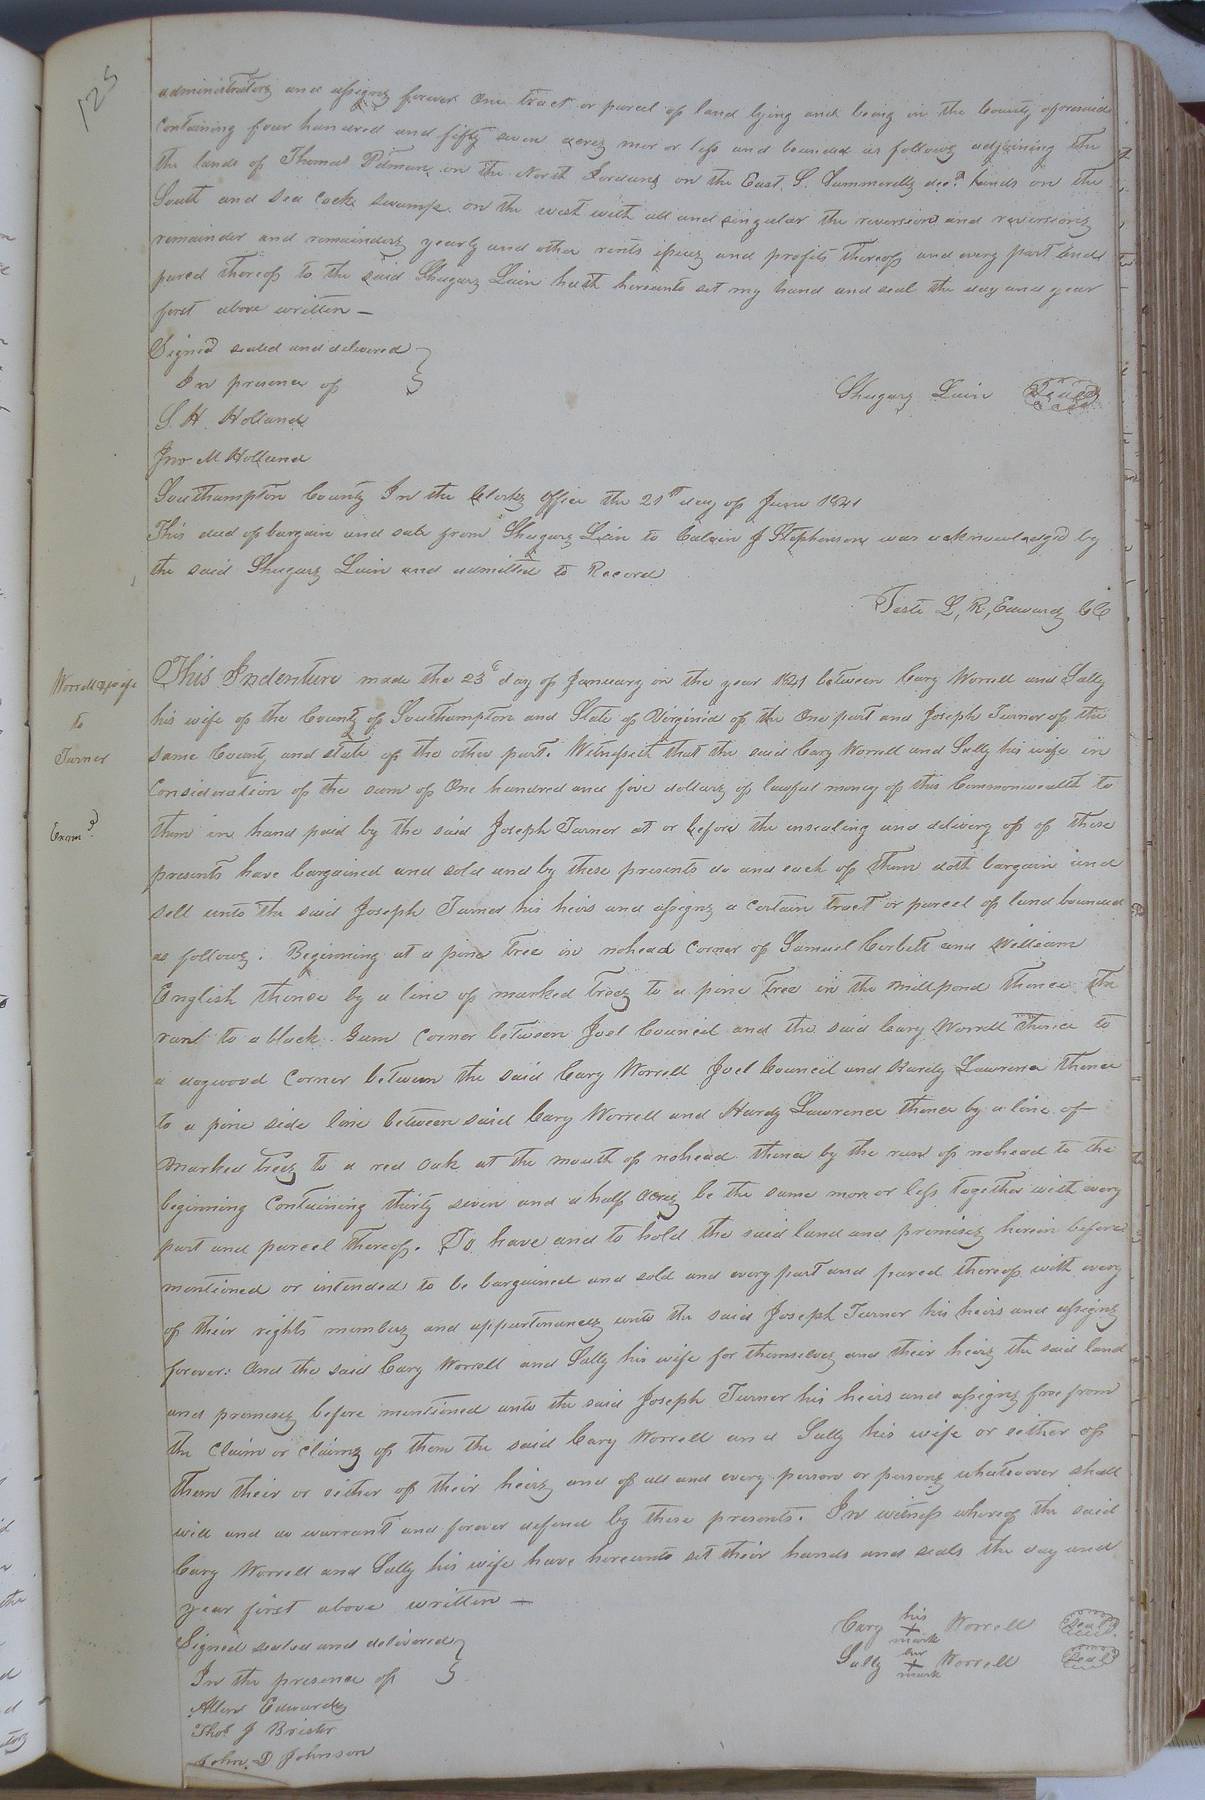 125
administrators and assigns forever One tract or parcel of land lying and being in the County aforesaid
Containing four hundred and fifty seven acres mor or less and bounded as follows adjoining the
the lands of Thomas Pitman on the North Jordans on the East, S. Summerells decd. lands on the
South and Sea Cock swamp on the west with all and singular the reversion and reversions
remainder and remainders yearly and other rents issues and profits thereof and every part and
parcel thereof to the said Shugars Lain hath hereunto set my hand and seal the day and year
first above written —
Signed sealed and delivered
In presence of
Shugars Lain Seal
S. H. Holland
Jno M Holland
Southampton County In the Clerks Office the 21st day of June 1841
This deed of bargain and sale from Shugars Lain to Calvin J Stephenson was acknowledged by
the said Shugars Lain and admitted to Record
Teste L, R, Edwards CC
Worrell & wife
to
Turner
Examd.
This Indenture made the 23d day of January in the year 1841 between Cary Worrell and Sally
his wife of the County of Southampton and State of Virginia of the One part and Joseph Turner of the
same County and state of the other part. Witnesseth that the said Cary Worrell and Sally his wife in
Consideration of the sum of One hundred and five dollars of lawful money of this Commonwealth to
them in hand paid by the said Joseph Turner at or before the ensealing and delivery of of these
presents have bargained and sold and by these presents do and each of them doth bargain and
sell unto the said Joseph Turner his heirs and assigns a certain tract or parcel of land bounded
as follows. Beginning at a pine tree in nohead corner of Samuel Corbett and William
English thence by a line of marked trees to a pine tree in the millpond thence the
run to a black Gum Corner between Joel Council and the said Cary Worrell thence to
a dogwood Corner between the said Cary Worrell Joel Council and Hardy Lawrence thence
to a pine side line between said Cary Worrell and Hardy Lawrence thence by a line of
marked trees to a red oak at the mouth of nohead thence by the run of nohead to the
beginning Containing thirty seven and a half acres be the same more or less together with every
part and parcel thereof. To have and to hold the said land and premises herein before
mentioned or intended to be bargained and sold and every part and parcel thereof with every
of their rights members and appurtenances unto the said Joseph Turner his heirs and assigns
forever: And the said Cary Worrell and Sally his wife for themselves and their heirs the said land
and premises before mentioned unto the said Joseph Turner his heirs and assigns free from
the Claim or Claims of them the said Cary Worrell and Sally his wife or either of
them their or either of their heirs and of all and every person or persons whatsoever shall
will and do warrant and forever defend by these presents. In witness whereof the said
Cary Worrell and Sally his wife have hereunto set their hands and seals the day and
year first above written —
Signed sealed and delivered
In the presence of
Cary his + mark Worrell Seal
Sally her + mark Worrell Seal
Allen Edwards
Thos J Brister
John. D Johnson